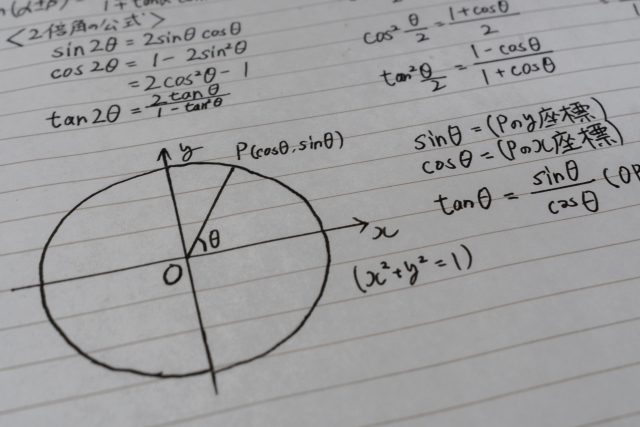 <2倍角の公式>
sin2θ = 2sinθcosθ
cos2θ = 1 - 2sin²θ
= 2cos²θ - 1
tan2θ = 2tanθ / 1 - tan²θ
cos² θ/2 = 1+cosθ / 2
tan² θ/2 = 1-cosθ / 1+cosθ
y
P(cosθ, sinθ)
θ
O
x
(x²+y²=1)
sinθ = (Pのy座標)
cosθ = (Pのx座標)
tanθ = sinθ / cosθ (OP